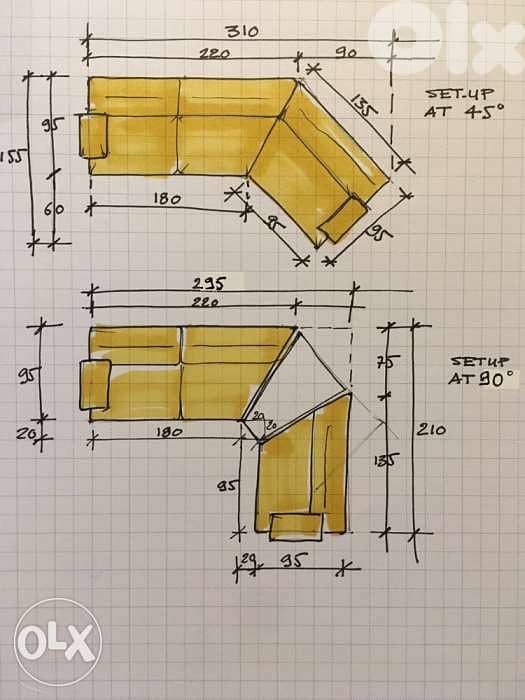 310
220
90
OLX
SET-UP
AT 45°
135
95
155
60
180
95
95
295
220
95
75
SETUP
AT 90°
20
180
20
20
210
95
135
20
95
OLX